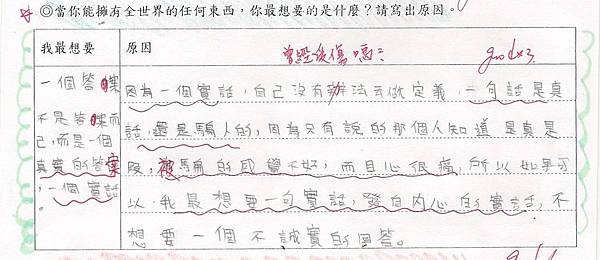 ◎當你能擁有全世界的任何東西，你最想要的是什麼？請寫出原因。
我最想要
原因
曾經受傷嗎？
good×3.
一個答案
不是答案而
己，而是一個
真實的答案
，一個實話
。
因為一個實話，自己沒有辦法去做定義，一句話是真
話，還是騙人的，因為只有說的那個人知道是真是
假，被騙的感覺不好，而且心很痛，所以如果可
以，我最想要一句實話，發自內心的實話，不
想要一個不誠實的回答。